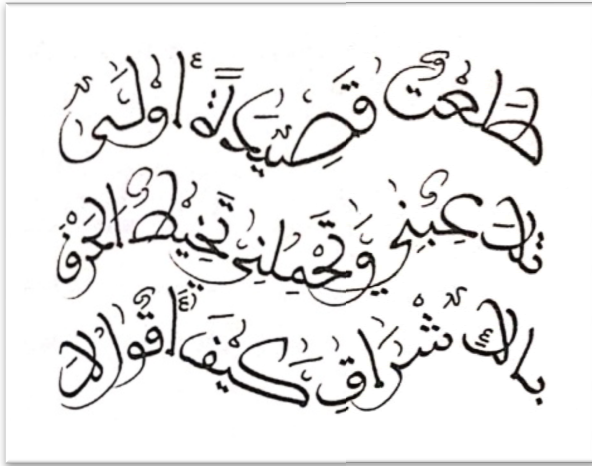 طلعت قَصِيدَةً أولَى
تلاعِبني وتَحْمِلني تَخيط الحَرْف
بالاشراقِ كيفَ اقوالا